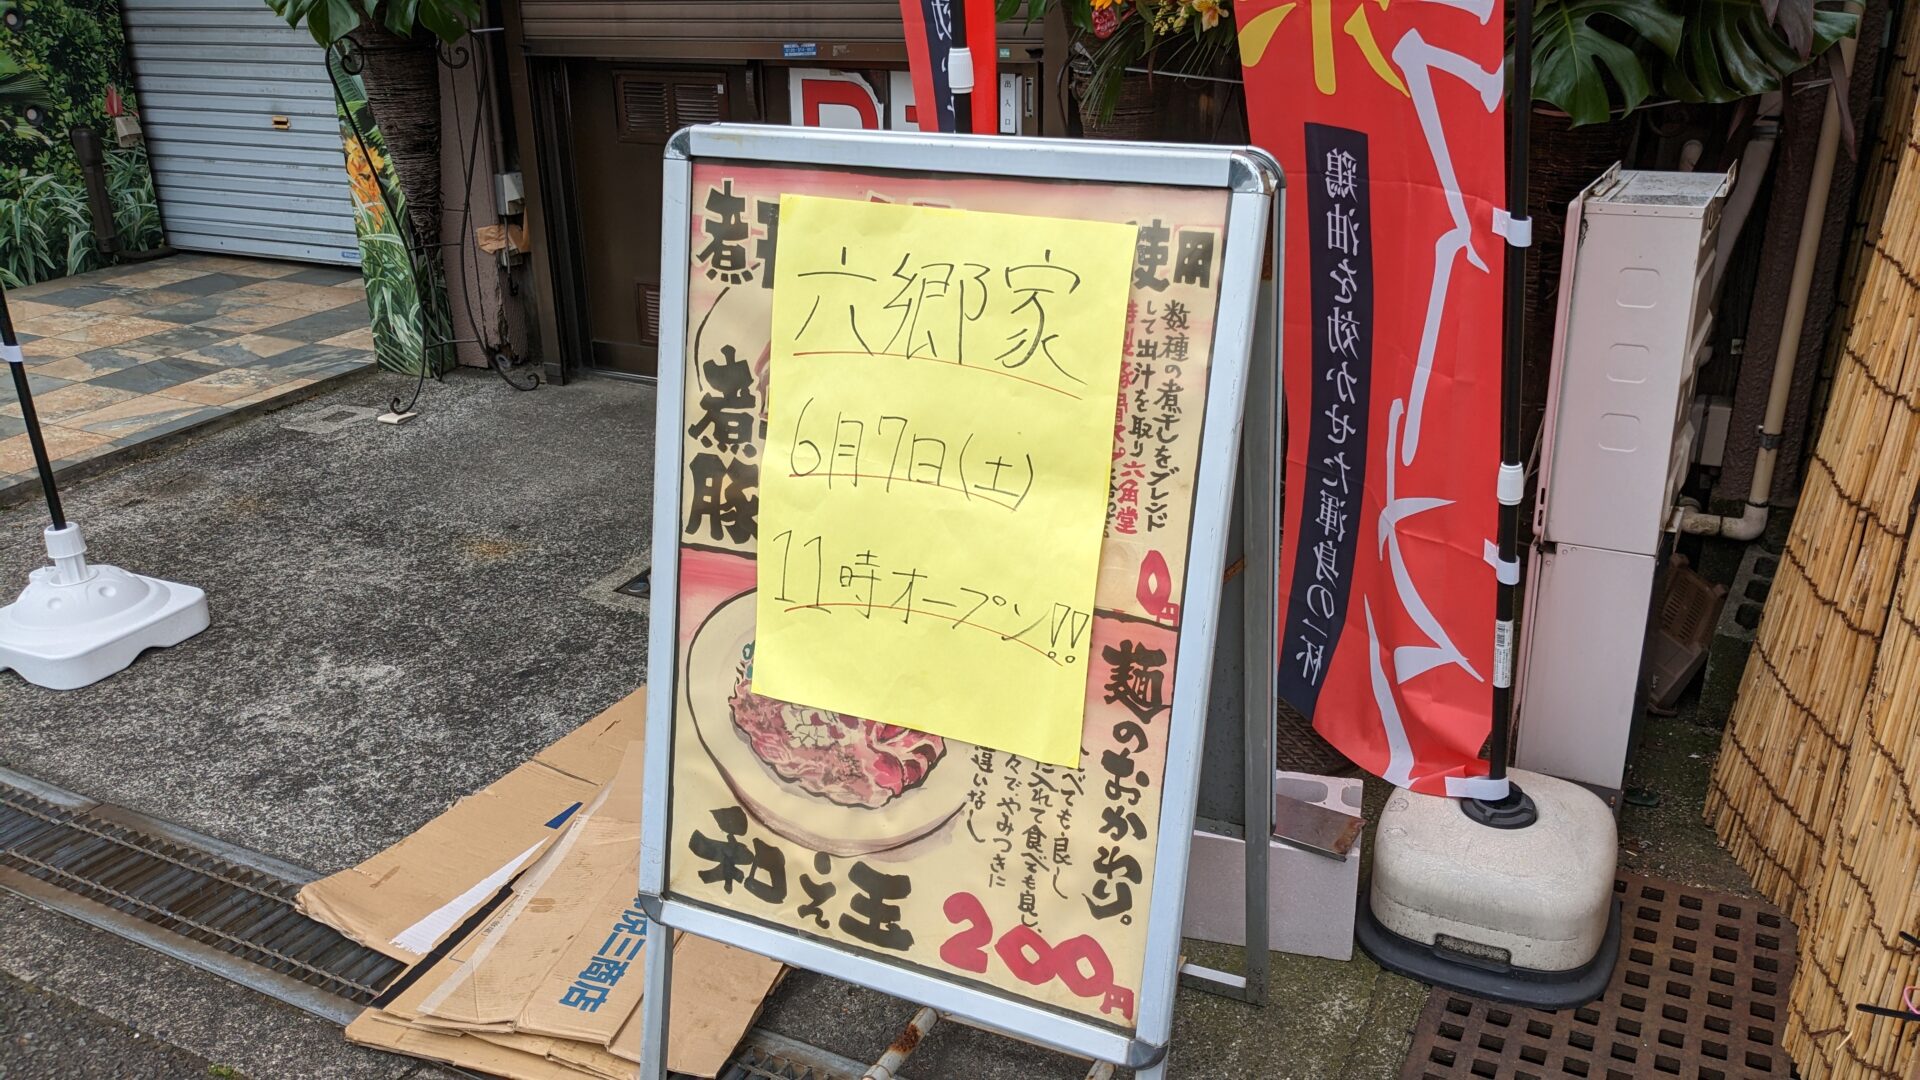 六郷家
6月7日(土)
11時オープン!!
煮干
使用
数種の煮干しをブレンド
して出汁を取り
六角堂
煮豚
0円
麺のおかわり。
べても良し
に入れて食べても良し、
々でやみつきに
違いなし
和え玉
200円
鶏油を効かせた渾身の一杯
ラーメン
出入口
三商店